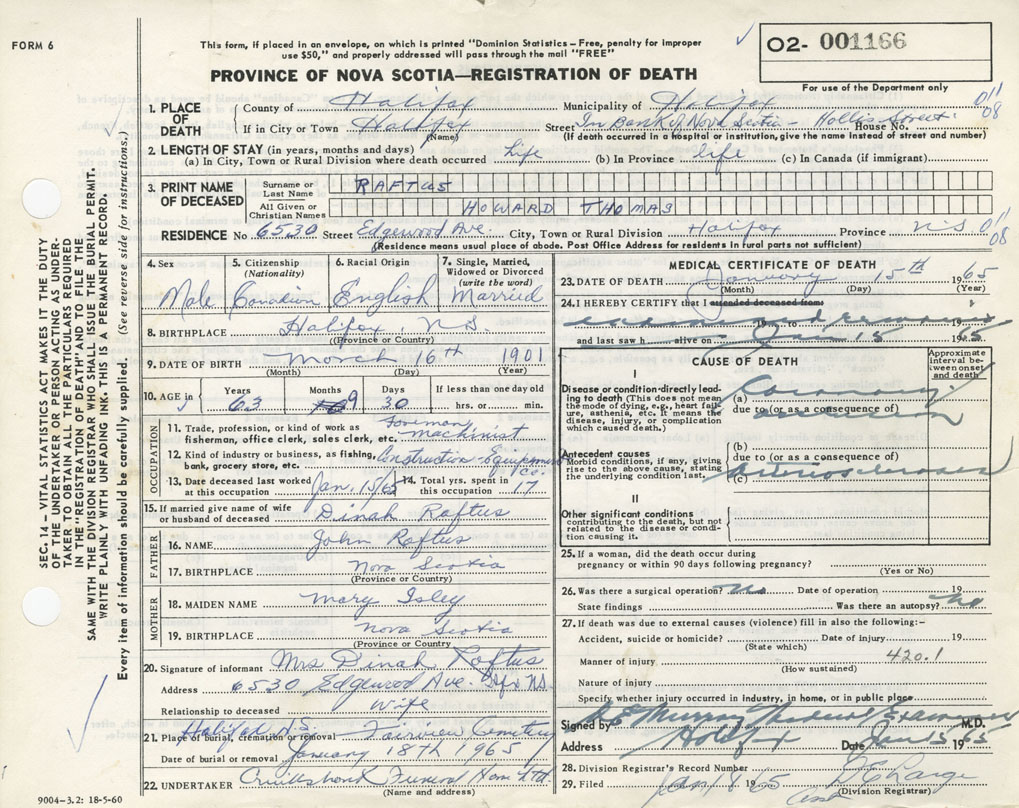 FORM 6
This form, if placed in an envelope, on which is printed "Dominion Statistics—Free, penalty for improper
use $50," and properly addressed will pass through the mail "FREE"
PROVINCE OF NOVA SCOTIA—REGISTRATION OF DEATH
02- 001166
For use of the Department only
1. PLACE OF DEATH County of Halifax Municipality of Halifax 011
If in City or Town Halifax Street In Bank of Nova Scotia - Hollis Street House No. 08
(Name) (If death occurred in a hospital or institution, give the name instead of street and number)
2. LENGTH OF STAY (in years, months and days)
(a) In City, Town or Rural Division where death occurred Life (b) In Province life (c) In Canada (if immigrant)
3. PRINT NAME OF DECEASED Surname or Last Name RAFTUS
All Given or Christian Names HOWARD THOMAS
RESIDENCE No 6530 Street Edgewood Ave. City, Town or Rural Division Halifax Province NS 011 08
(Residence means usual place of abode. Post Office Address for residents in rural parts not sufficient)
4. Sex Male
5. Citizenship (Nationality) Canadian
6. Racial Origin English
7. Single, Married, Widowed or Divorced (write the word) Married
8. BIRTHPLACE Halifax, N.S.
(Province or Country)
9. DATE OF BIRTH March 16th 1901
(Month) (Day) (Year)
10. AGE in Years 63 Months 9 Days 30 If less than one day old hrs. or min.
OCCUPATION
11. Trade, profession or kind of work as fisherman, office clerk, sales clerk, etc. Foreman machinist
12. Kind of industry or business, as fishing, bank, grocery store, etc. Construction Equipment Co.
13. Date deceased last worked at this occupation Jan. 15/65 14. Total yrs. spent in this occupation 17
15. If married give name of wife or husband of deceased Dinah Raftus
FATHER
16. NAME John Raftus
17. BIRTHPLACE Nova Scotia
(Province or Country)
MOTHER
18. MAIDEN NAME Mary Isley
19. BIRTHPLACE Nova Scotia
(Province or Country)
20. Signature of informant Mrs Dinah Raftus
Address 6530 Edgewood Ave. Hfx NS.
Relationship to deceased wife
21. Place of burial, cremation or removal Halifax N.S. Fairview Cemetery
Date of burial or removal January 18th 1965
22. UNDERTAKER Cruikshank Funeral Home Ltd.
(Name and address)
9004—3.2: 18-5-60
MEDICAL CERTIFICATE OF DEATH
23. DATE OF DEATH January 15th 1965
(Month) (Day) (Year)
24. I HEREBY CERTIFY that I attended deceased from
examined remains
19 to 19
and last saw h alive on Jan 15 1965
CAUSE OF DEATH
Approximate interval between onset and death
I
Disease or condition directly leading to death (This does not mean the mode of dying, e.g., heart failure, asthenia, etc. It means the disease, injury, or complication which caused death.)
(a) Coronary
due to (or as a consequence of)
Antecedent causes
Morbid conditions, if any, giving rise to the above cause, stating the underlying condition last.
(b)
due to (or as a consequence of)
(c) Arteriosclerosis
II
Other significant conditions
contributing to the death, but not related to the disease or condition causing it.
25. If a woman, did the death occur during
pregnancy or within 90 days following pregnancy?
(Yes or No)
26. Was there a surgical operation? No Date of operation 19
State findings Was there an autopsy? No
27. If death was due to external causes (violence) fill in also the following:-
Accident, suicide or homicide? Date of injury 19
(State which)
Manner of injury 420.1
(How sustained)
Nature of injury
Specify whether injury occurred in industry, in home, or in public place
Signed by Murray Medical Examiner M.D.
Address Halifax Date Jan 15 1965
28. Division Registrar's Record Number
29. Filed Jan 1965
(Division Registrar)
SEC. 14—VITAL STATISTICS ACT MAKES IT THE DUTY
OF THE UNDERTAKER OR PERSON ACTING AS UNDER-
TAKER TO OBTAIN ALL THE PARTICULARS REQUIRED
IN THE "REGISTRATION OF DEATH" AND TO FILE THE
SAME WITH THE DIVISION REGISTRAR WHO SHALL ISSUE THE BURIAL PERMIT.
WRITE PLAINLY WITH UNFADING INK. THIS IS A PERMANENT RECORD.
Every item of information should be carefully supplied. (See reverse side for instructions.)